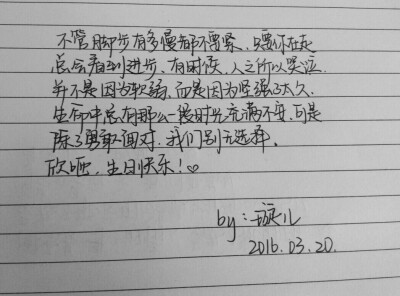 不管脚步有多慢都不要紧，只要你在走
总会看到进步。有时候，人之所以哭泣
并不是因为软弱，而是因为坚强了太久。
生命中总有那么一段时光充满不安，可是
除了勇敢面对，我们别无选择。
欣呃，生日快乐！♡
by：璇儿
2016.03.20.